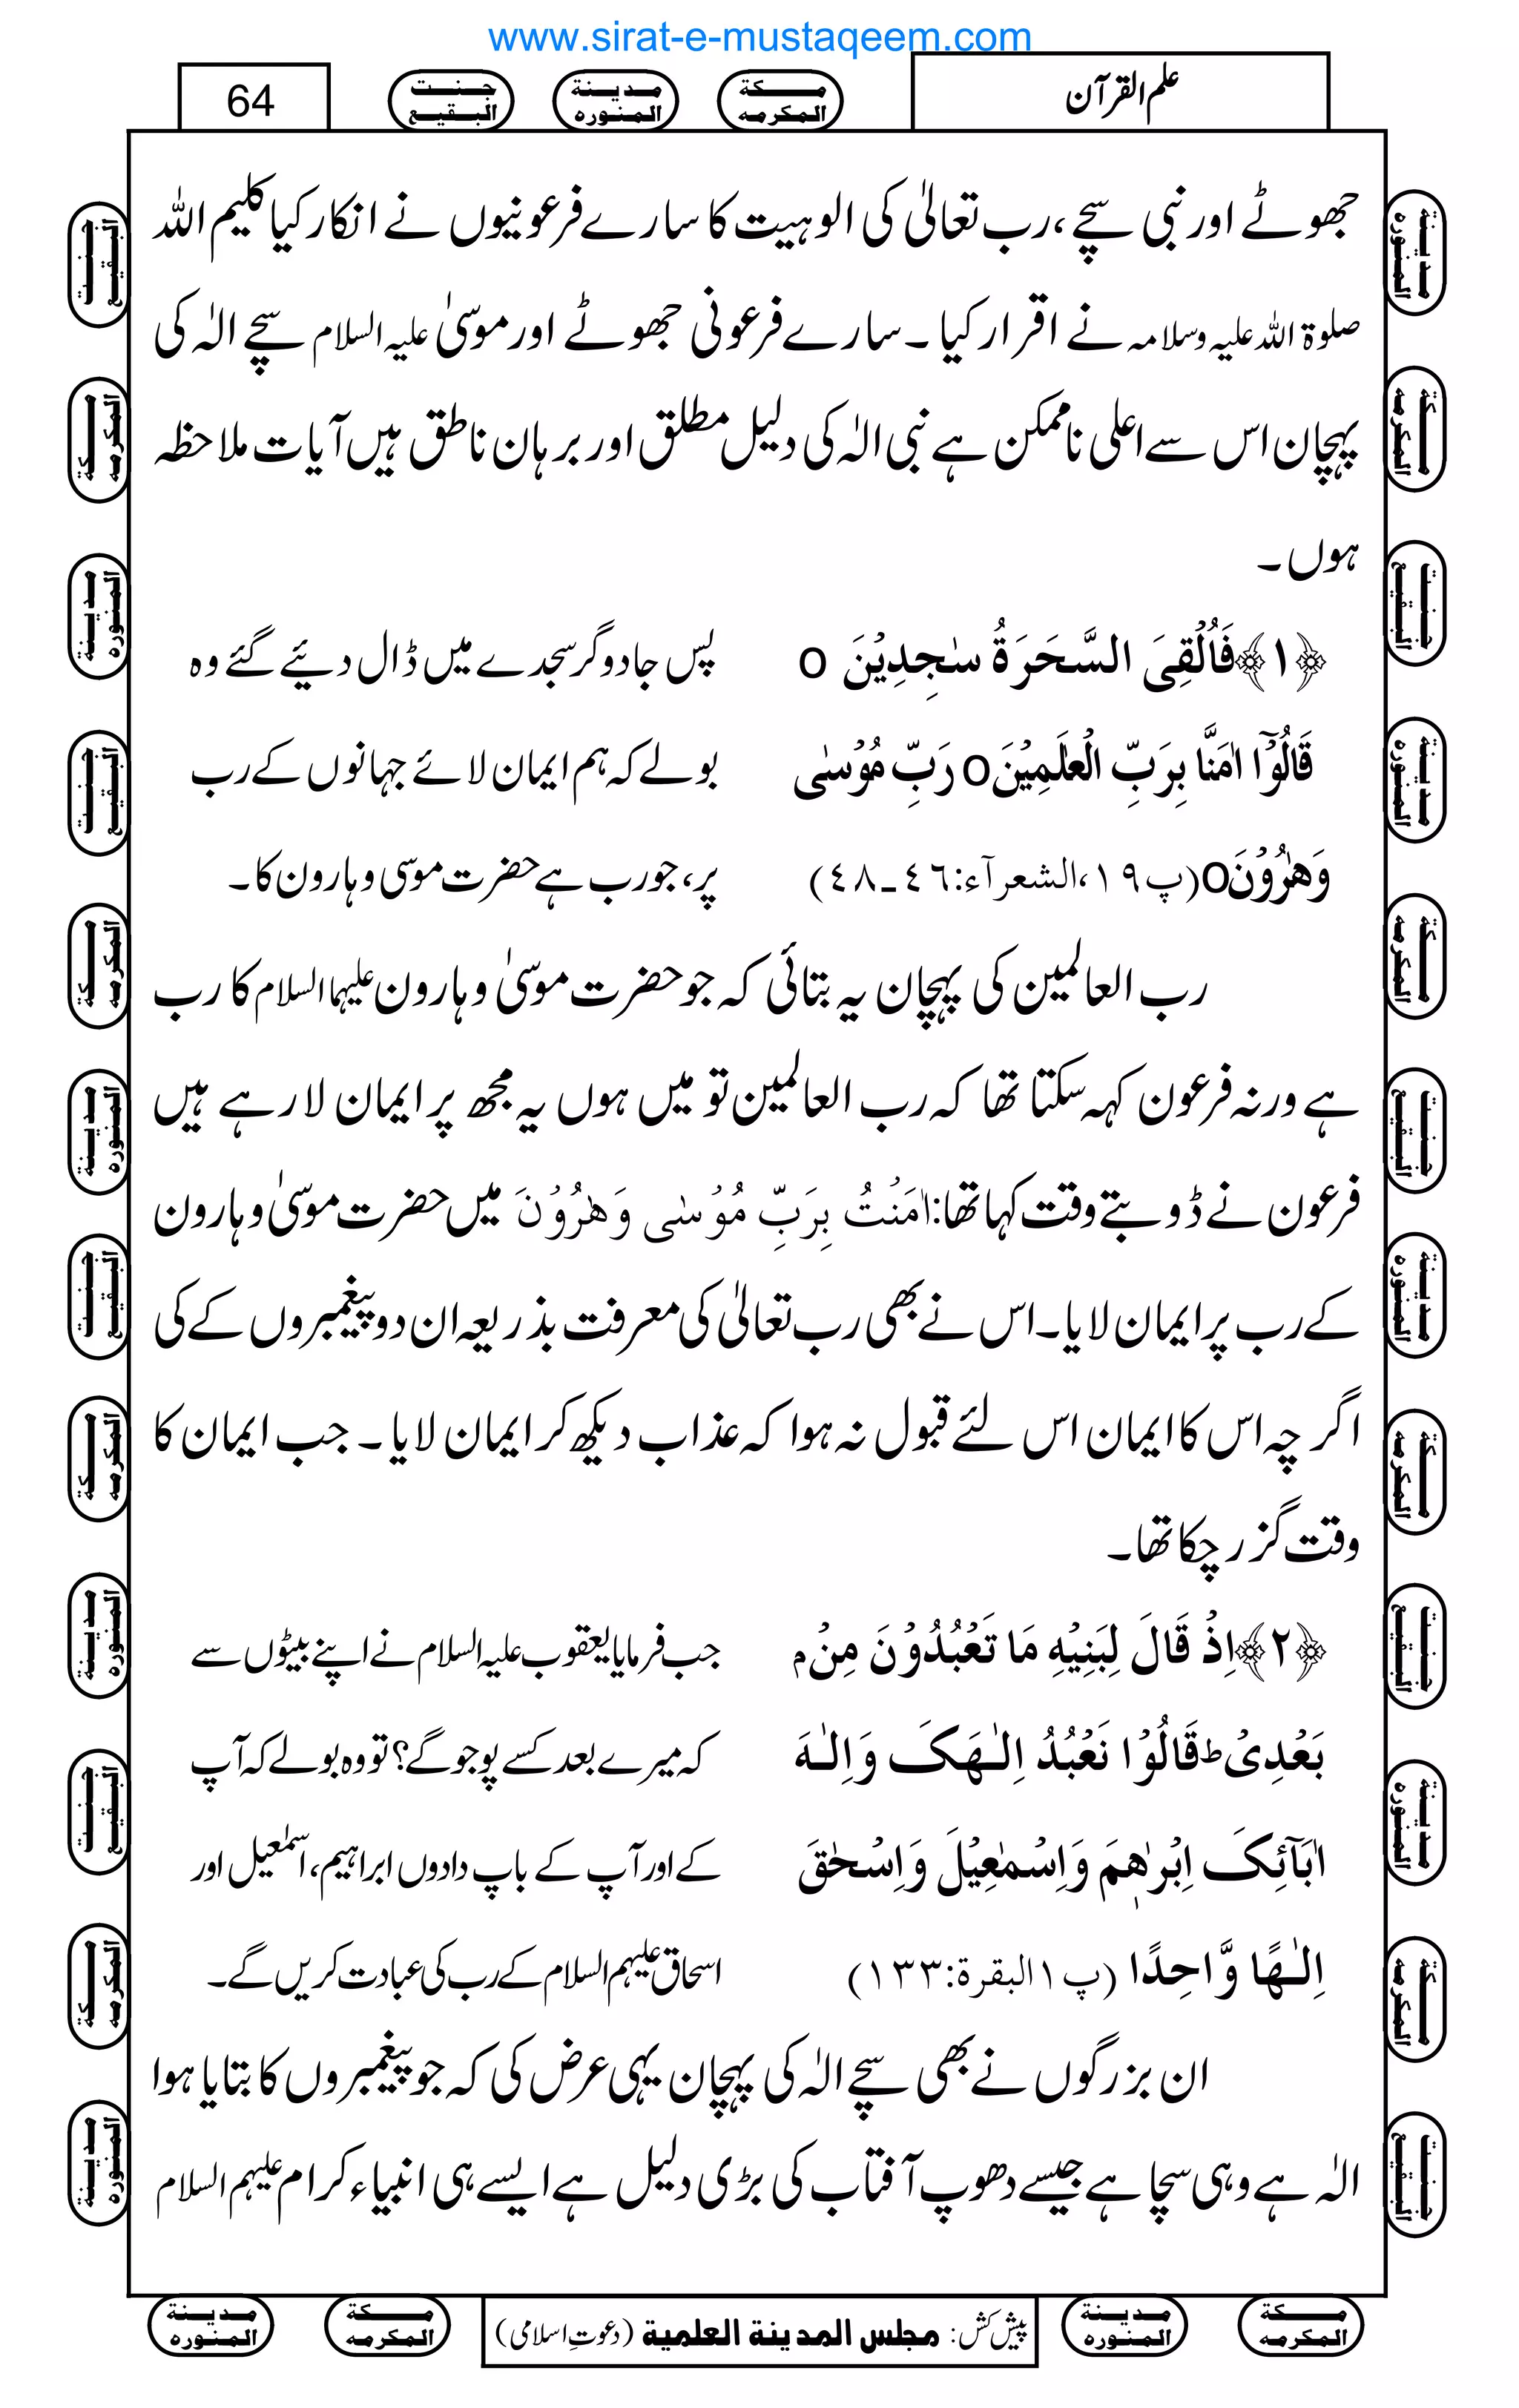 www.sirat-e-mustaqeem.com
علم القرآن
مكة المكرمه
مدينة المنوره
جنت البقيع
64
جھوٹے اور نبی سچے ، رب تعالیٰ کی الوہیت کا سارے فرعونیوں نے انکار کیا کلیم اللہ
صلوۃ اللہ علیہ وسلامہ نے اقرار کیا ۔ سارے فرعونی جھوٹے اور موسیٰ علیہ السلام سچے الٰہ کی
پہچان اس سے اعلی ناممکن ہے نبی الٰہ کی دلیل مطلق اور برہان ناطق ہیں آیات ملاحظہ
ہوں ۔
﴿۱﴾ فَاُلْقِیَ السَّحَرَةُ سٰجِدِیْنَ o
قَالُوْۤا اٰمَنَّا بِرَبِّ الْعٰلَمِیْنَ o رَبِّ مُوْسٰی
وَهٰرُوْنَ o (پ۱۹،الشعرآء:٤٦ـ٤٨)
پس جادوگر سجدے میں ڈال دیئے گئے وہ
بولے کہ ہم ایمان لائے جہانوں کے رب
پر، جو رب ہے حضرت موسی وہارون کا ۔
رب العالمین کی پہچان یہ بتائی کہ جو حضرت موسیٰ وہارون علیہما السلام کا رب
ہے ورنہ فرعون کہہ سکتا تھا کہ رب العالمین تو میں ہوں یہ مجھ پر ایمان لارہے ہیں
فرعون نے ڈوبتے وقت کہا تھا: اٰمَنْتُ بِرَبِّ مُوْسٰی وَهٰرُوْنَ میں حضرت موسیٰ وہارون
کے رب پر ایمان لایا۔ اس نے بھی رب تعالیٰ کی معرفت بذریعہ ان دو پیغمبروں کے کی
اگرچہ اس کا ایمان اس لئے قبول نہ ہوا کہ عذاب دیکھ کر ایمان لایا ۔ جب ایمان کا
وقت گزر چکا تھا ۔
﴿۲﴾ اِذْ قَالَ لِبَنِیْهِ مَا تَعْبُدُوْنَ مِنْۢ
بَعْدِیْ ؕ قَالُوْا نَعْبُدُ اِلٰـهَکَ وَاِلٰـهَ
اٰبَآئِکَ اِبْرٰهٖمَ وَاِسْمٰعِیْلَ وَاِسْحٰقَ
اِلٰـهًا وَّاحِدًا (پ۱البقرة:۱۳۳)
جب فرمایا یعقوب علیہ السلام نے اپنے بیٹوں سے
کہ میرے بعد کسے پوجو گے؟ تو وہ بولے کہ آپ
کے اور آپ کے باپ دادوں ابراہیم، اسمٰعیل اور
اسحاق علیہم السلام کے رب کی عبادت کریں گے۔
ان بزرگوں نے بھی سچے الٰہ کی پہچان یہی عرض کی کہ جو پیغمبروں کا بتایا ہوا
الٰہ ہے وہی سچا ہے جیسے دھوپ آفتاب کی بڑی دلیل ہے ایسے ہی انبیاء کرام علیہم السلام
پیش کش: مجلس المدينة العلمية (دعوتِ اسلامی)